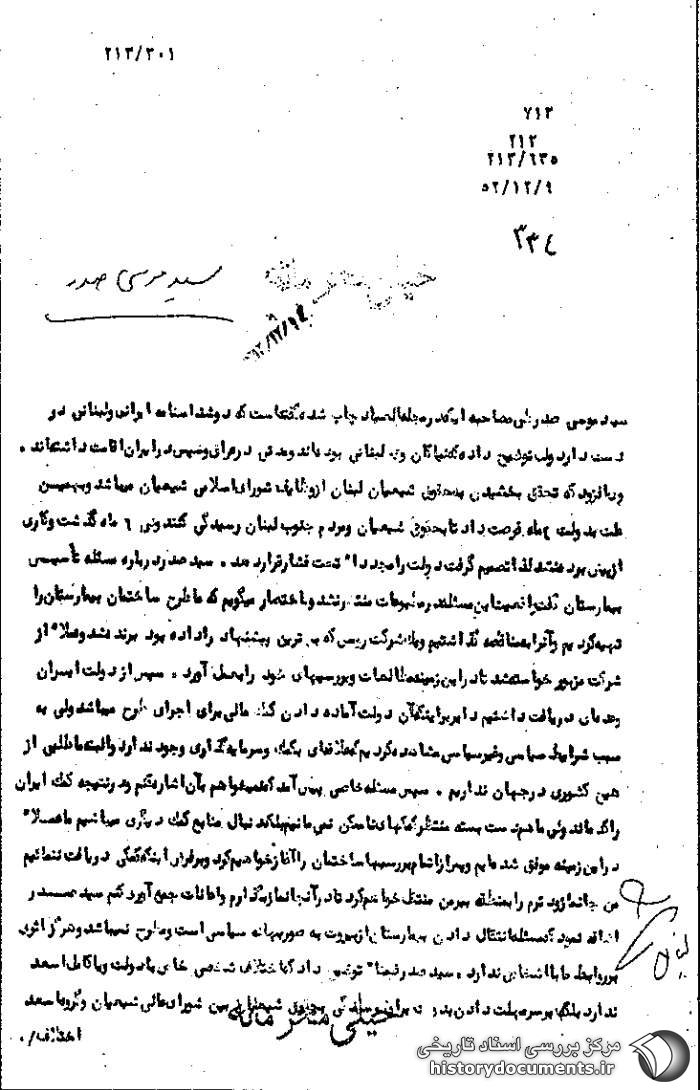 ۲۱۳/۳۰۱
۷۱۳
۲۱۲
۲۱۳/۶۳۵
۵۲/۱۲/۹
۳۳٤
خیلی محرمانه
سید موسی صدر
سید موسی صدر طی مصاحبه ایکه در مجله الصیاد چاپ شده گفته است که دو شناسنامه ایرانی ولبنانی در
دست دارد ولی توضیح داده که نیاکان وی لبنانی بوده اند ومدتی در عراق وسپس در ایران اقامت داشته اند .
وی افزود که تحقق بخشیدن به حقوق شیعیان لبنان از وظایف شورای اسلامی شیعیان میباشد وبهمین
علت بدولت ٤ ماه فرصت داد تا بحقوق شیعیان ومردم جنوب لبنان رسیدگی کنند ولی ٦ ماه گذشت وکاری
از پیش برده نشد لذا تصمیم گرفت دولت را مجددا" تحت فشار قرار دهد . سید صدر درباره مسئله تأسیس
بیمارستان گفت این مسئله در مطبوعات منتشر نشد وباختصار میگویم که ما طرح ساختمان بیمارستان را
تهیه کردیم وآنرا بمناقصه گذاشتیم ویک شرکت روسی که بهترین پیشنهاد را داده بود برنده شد وعملا" از
شرکت مزبور خواسته شد تا در این زمینه مطالعات وبررسیهای خود را بعمل آورد . سپس از دولت ایران
وعده ای دریافت داشتیم دایر براینکه آن دولت آماده دادن کمک مالی برای اجرای طرح میباشد ولی به
سبب شرایط سیاسی وغیر سیاسی مشاهده کردیم که علاقه ای بکمک وسرمایه گذاری وجود ندارد والبته ما طلبی از
هیچ کشوری در جهان نداریم . سپس مسئله خاصی پیش آمد که نمیخواهم بآن اشاره کنم ودر نتیجه کمک ایران
راکد ماند ولی ما هم دست بسته منتظر کمکهای ناممکن نمی مانیم بلکه دنبال منابع کمک دیگری میباشیم ما عملا"
در این زمینه موفق شده ایم وپس از اتمام بررسیها ساختمان را آغاز خواهیم کرد وبرفرض اینکه کمکی دریافت ننمائیم
من خواهم کرد تا در آنجا واعانات جمع آوری کنم سید صدر
اضافه نمود که مسئله انتقال دادن بیمارستان از بیروت به صور بهانه سیاسی است ومطرح نمیباشد وهرگز اثری
بر روابط ما با ندارد . سید صدر ضمنا" توضیح داد که اختلاف شخصی خاصی با دولت ویا کامل اسعد
ندارد بلکه بر سر مهلت دادن بدولت برای رسیدگی بحقوق شیعیان بین شورای عالی شیعیان وگروه اسعد
اختلاف/ ۰
خیلی محرمانه
مرکز بررسی اسناد تاریخی
historydocuments.ir